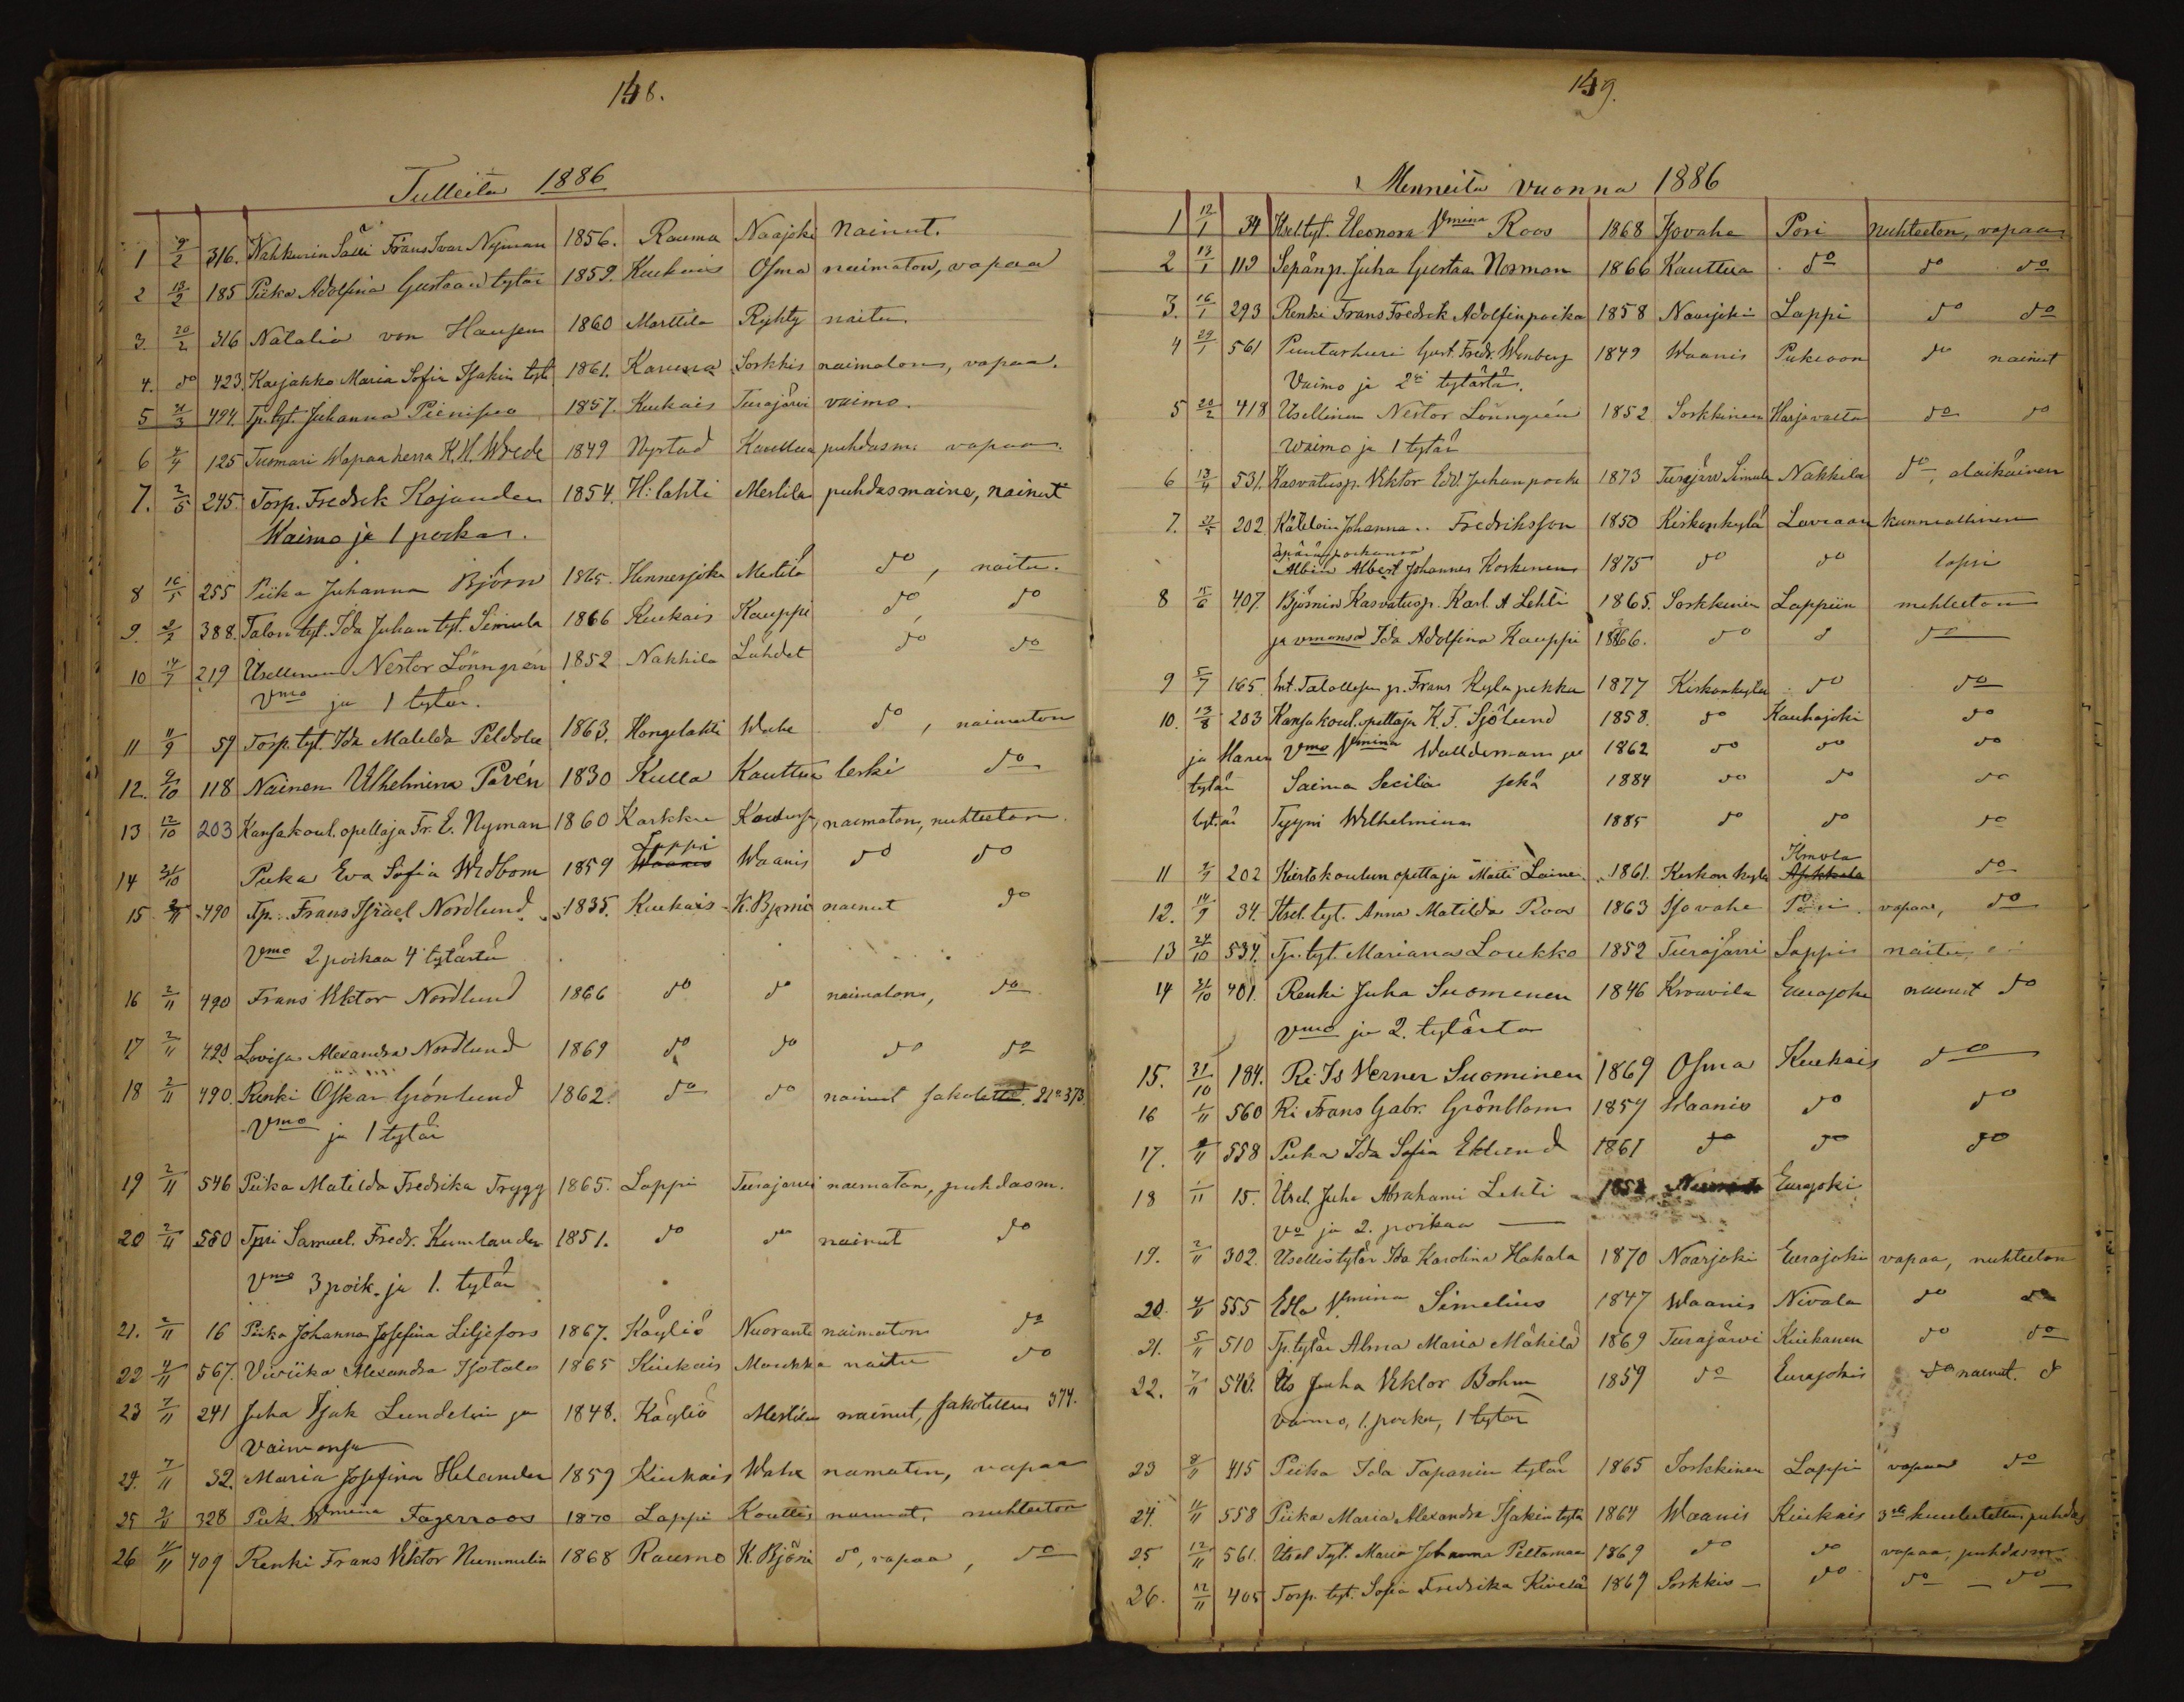 148.
Tulleita 1886
1 9/2 316. Nahkurin Sälli Frans Ivar Nyman 1856. Rauma Naajoki Nainut.
2 13/2 185 Piika Adolfina Gustaan tytär 1859. Kiukais Osma naimaton, vapaa
3. 20/2 316 Natalia von Hausen 1860 Marttila Ryhty naitu.
4. do 423. Karjakko Maria Sofia Isakin tytr 1861. Karuna Sorkkis naimaton, vapaa.
5 21/3 494. Tp. tyt. Juhanna Pienipea 1857. Kiukais Turajärvi vaimo.
6 125 Tuomari Wapaaherra K.H. Wrede 1849 Nystad Kauttua puhdasm. vapaa.
7. 2/5 245. Torp. Fredrek Kojander 1854. H:lahti Mestila puhdasmaine, nainut
Waimo ja 1 poika.
8 16/5 255 Piika Juhanna Björn 1865. Hinnerjoki Mestilä do, naitu.
9. 388. Talon tyt. Ida Juhan tyt. Simula 1866 Kiukais Kauppi do, do
10 14/7 219 Itsellinen Nestor Lönngrén 1852 Nakkila Lähdet do do
Vmo ja 1 tytär.
11 11/9 59 Torp. tyt. Ida Matilda Peldola 1863. Hongolahti Wahe do, naimaton
12. 9/10 118 Nainen Wilhelmina Pavén 1830 Kulla Kauttua leski do
13 12/10 203 Kansakoul. opettaja Fr. E. Nyman 1860 Karkku naimaton, nuhteeton.
14 31/10 Piika Eva Sofia Widbom 1859 Lappi Waanis do do
15 2/11 490 Tp. Frans Israel Nordlund 1835. Kiukais K. Bjerni nainut do
Vmo 2 poikaa 4 tytärtä
16 2/11 490 Frans Viktor Nordlund 1866 do do naimaton, do
17 2/11 490 Lovisa Alexandra Nordlund 1869 do do do do
18 2/11 490. Renki Oskar Grönlund 1862. do do nainut sakotettu 21 s. 373.
Vmo ja 1 tytär
19 2/11 546 Piika Matilda Fredrika Trygg 1865. Lappi Turajarvi naimaton, puhdasm.
20 2/11 550 Tpri Samuel. Fredr. Kumlander 1851. do do nainut do
Vmo 3 poik. ja 1. tytär
21. 2/11 16 Piika Johanna Josefina Liljefors 1867. Köyliö Nuoranto naimaton do
22 4/11 567. Viviika Alexandra Isotalo 1865 Kiukais Moukka naitu do
23 7/11 241 Juha Isak Lundelin ja 1848. Köyliö Mestila nainut, sakotettu 374.
Vaimonsa
24. 7/11 32. Maria Josefina Helander 1859 Kiukais Wahe naimaton, vapaa
25 328 Piik. Wmina Fagerroos 1870 Lappi Kauttis naimat, nuhteeton
26 11/11 409 Renki Frans Viktor Nummelin 1868 Raumo K. Björni do, vapaa, do
149.
Menneitä vuonna 1886
1 12/1 34 Itsel. tyt. Eleonora Vmina Roos 1868 Isovahe Pori nuhteeton, vapaa
2 13/1 119 Sepän p. Juha Gustaa Norman 1866 Kauttua do do do
3. 16/1 293 Renki Frans Fredrek Adolfinpoika 1858 Naarjoki Lappi do do
4 29/1 561 Puutarhuri Gust. Fredr. Wenberg 1849 Waanis Pukioon do nainut
Vaimo ja 2si tytärtä.
5 20/2 418 Itsellinen Nestor Lönngrén 1852 Sorkkinen Harjavalta do do
Waimo ja 1 tytär
6 13/4 531. Kasvatusp. Viktor Edv. Juhanpoika 1873 Turajärvi Simula Nakkila do, alaikäinen
7. 27/5 202 Kätilöin Johanna Fredriksson 1850 Kirkonkylä Laviaan kunniallinen
äpäräpoikansa
Albin Albert Johannes Koskinen 1875 do do lapsi
8 407. Björnin Kasvatusp. Karl. A Lehti 1865. Sorkkinen Lappiin nuhteeton
ja vmonsa Ida Adolfina Kauppi 1866. do d do
9 5/7 165. Ent. Talollisen p. Frans Kylapekka 1877 Kirkonkyla do do
10. 13/8 203 Kansakoul. opettaja K.F. Sjölund 1858. do Kauhajoki do
ja Hänen Vmo Vmina Walldeman ja 1862 do do do
tytär Saima Secilia sekä 1884 do do do
tytär Tyyni Wilhelmina 1885 do do do
11 202 Kiertokoulun opettaja Matti Laine. 1861. Kirkonkyla Kmola do
12. 14/9 34. Itsel. tyt. Anna Matilda Roos 1863 Isovahe Pori vapaa, do
13 24/10 534. Tp. tyt. Mariana Loukko 1852 Turajärvi Lappi naitu,
14 31/10 401. Renki Juha Suomenen 1846 Krouvila Eurajoki nainut do
Vmo ja 2. tytärta
15. 31/10 184. Ri Is Verner Suominen 1869 Osma Kiukais do
16 1/11 560 Ri Frans Gabr. Grönblom 1857 Waanis do do
17. 558 Piika Ida Sofia Eklund 1861 do do do
18 1/11 15. Itsel. Juha Abrahami Lehti 1852 Eurajoki
Vo ja 2. poikaa
19. 2/11 302. Itsellistytär Ida Karolina Hakala 1870 Naarjoki Eurajoki vapaa, nuhteeton
20. 4/11 555 Edla Vmina Simelius 1847 Waanis Nivala do do
21. 5/11 510 Tp. tytär Alma Maria Mäkilä 1869 Turajärvi Kiukanen do do
22. 7/11 543. Its Juha Viktor Bohm 1859 do Eurajokis do nainut. d
Vaimo, 1. poika, 1 tytär
23 8/11 415 Piika Ida Tapanin tytär 1865 Sorkkinen Lappi vapaa do
24. 11/11 558 Piika Maria Alexandra Isakin tytär 1864 Waanis Kiukais 3sti kuulutettu, puhdas
25 12/11 561. Itsel Tyt. Maria Johanna Peltomaa 1869 do do vapaa, puhdasm
26. 12/11 405 Torp. tyt. Sofia Fredrika Kivelä 1867 Sorkkis do do do